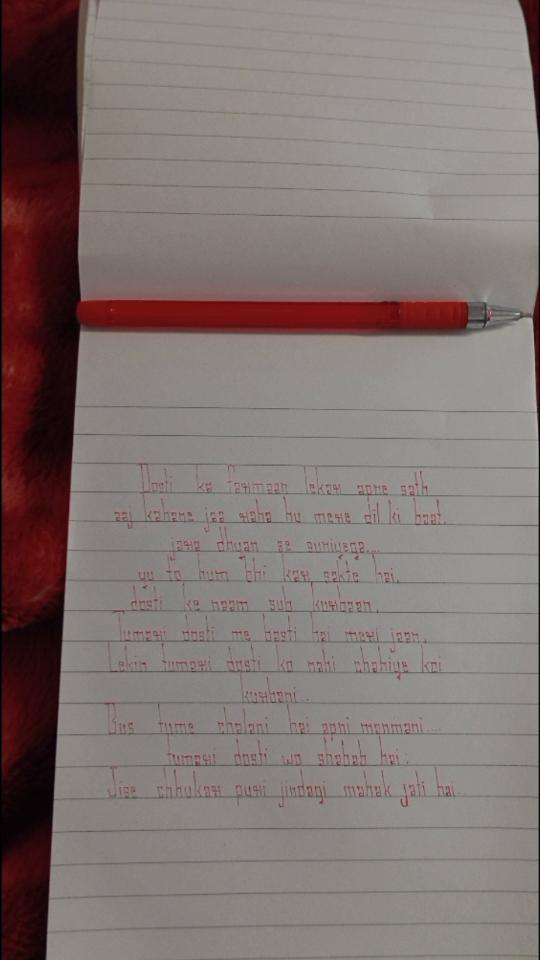 Dosti ka farmaan lekar apne sath
aaj kahane jaa raha hu mere dil ki baat.
jara dhyan se suniyega...
yu to hum bhi kar sakte hai,
dosti ke naam sub kurbaan,
Tumari dosti me basti hai meri jaan,
Lekin tumari dosti ko nahi chahiye koi
kurbani..
Bus tume chalani hai apni manmani...
tumari dosti wo shabab hai:
Jise chhukar puri jindagi mahak jati hai..